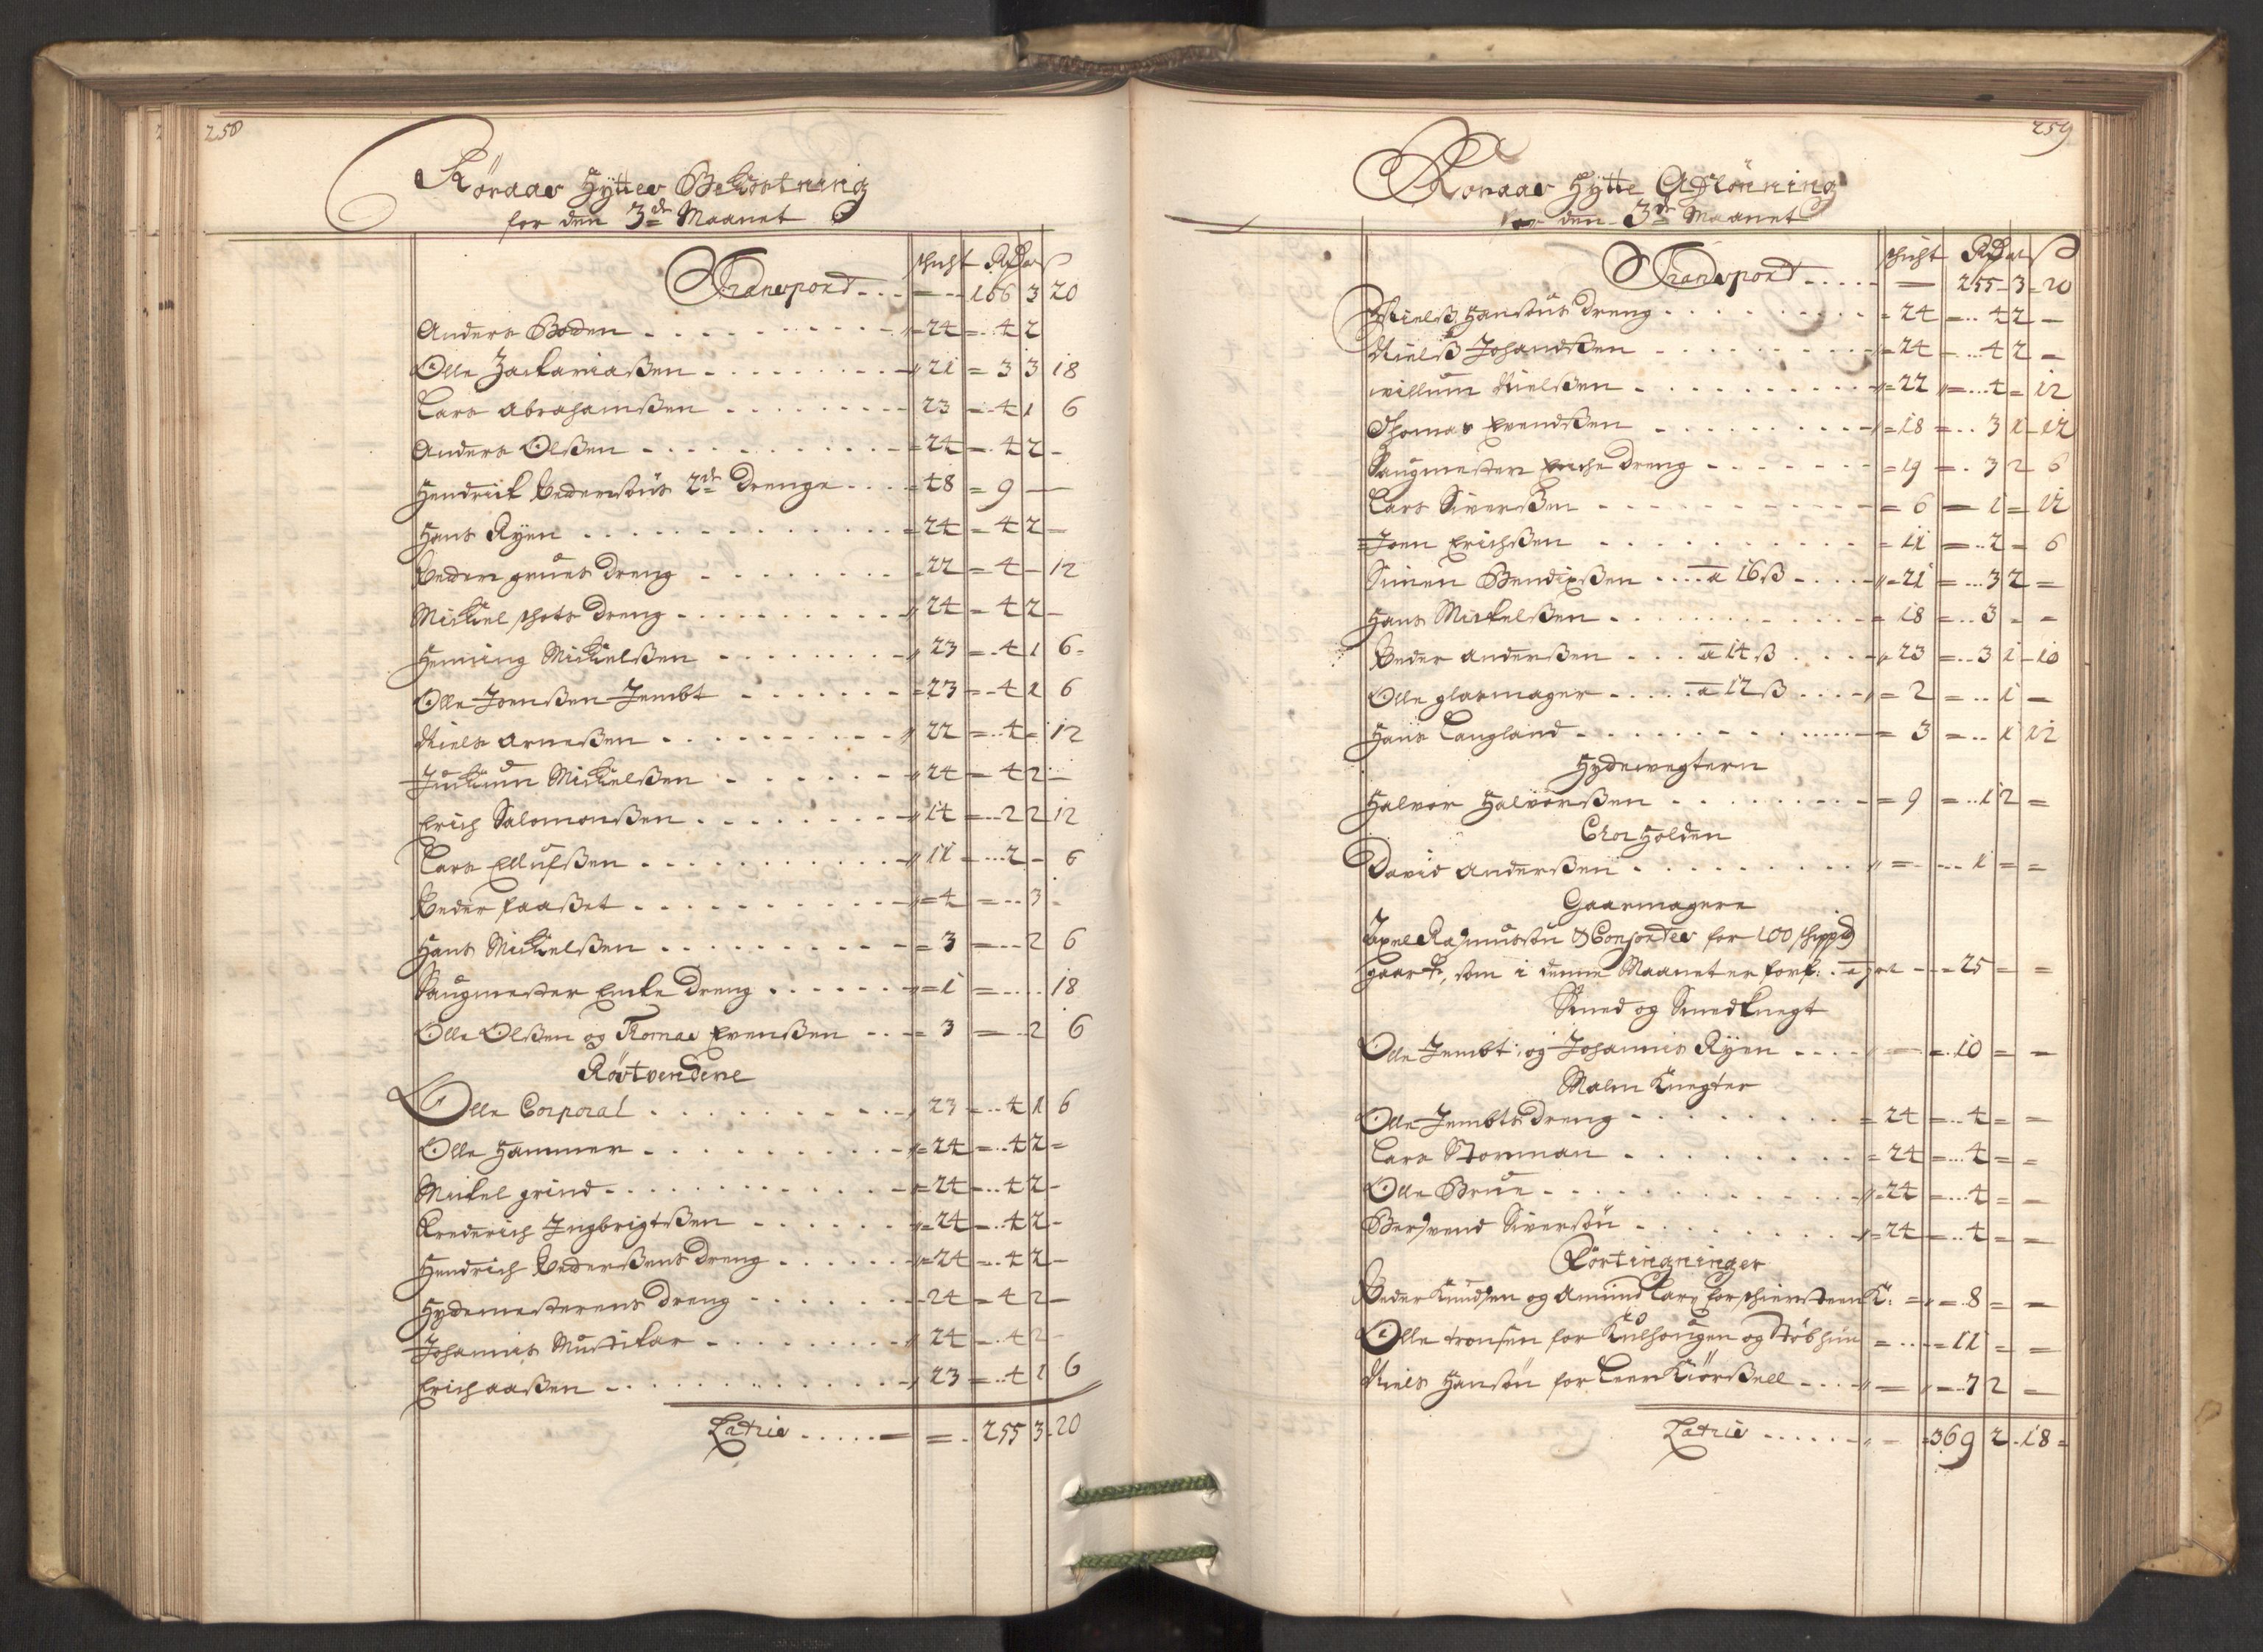 258
Röraas Hÿttes Bekostning
for den 3de Maanet
schicht Rdr ort ß
Transpord - - - 156 3 20
Anders Boden - 24 4 2
Olle Zackariaßen - 21 3 3 18
Lars Abrahamßen - 23 4 1 6
Anders Olßen - 24 4 2 -
Hendrick Pedersøns 2de Drenge - 48 9 -
Hans Rÿen - 24 4 2 -
Peder grues Dreng - 22 4 - 12
Mickel schots Dreng - 24 4 2 -
Heming Mickelßen - 23 4 1 6
Olle Joenßen Jembt - 23 4 1 6
Niels Arneßen - 22 4 - 12
Jockum Mickelßen - 24 4 2 -
Erich Salomonßen - 14 2 2 12
Lars Ellufßen - 11 2 - 6
Peder faaßet - 4 3 -
Hans Mickelßen - 3 2 6
Saugmester Encke Dreng - 1 18
Olle Olßen og Thomas Evenßen - 3 2 6
Röstvendere
Olle Corporal - 23 4 1 6
Olle Hammer - 24 4 2 -
Mickel grind - 24 4 2 -
Frederich Ingbrigtßen - 24 4 2 -
Hendrich Pederßens Dreng - 24 4 2 -
Hydemesterens Dreng - 24 4 2 -
Johannis Musikar - 24 4 2 -
Erich aaßen - 23 4 1 6
Latris - - 255 3 20
259
Röraas Hÿtte Aflönning
for den 3de Maanet
schicht Rdr ort ß
Transpord - - 255 3 20
Nielß Hansøns Dreng - 24 4 2 -
Nielß Johandßen - 24 4 2 -
willum Nielßen - 22 4 - 12
Thomas Evendßen - 18 3 1 12
Saugmester Enche Dreng - 19 3 2 6
Lars Siverßen - 6 1 - 12
Joen Erichßen - 11 2 - 6
Simen Bendixßen - a 16 ß - 21 3 2 -
Hans Mickelßen - 18 3 - -
Peder Anderßen - a 14 ß - 23 3 1 10
Olle glasmager - a 12 ß - 2 1 -
Hans Langland - 3 1 12
Hydewegtern
Halvor Halvorßen - 9 1 2 -
Chor Holden
David Anderßen - - 1 - -
Gaarmagere
Axel Rasmusøn & Consorter for 100 schippd
gaark:, som i denne Maanet er fork: a 1 ort - 25 - -
Smed og Smedknegt
Olle Jembt: og Johannis Rÿen - 10 - -
Malm Knegter
Olle Jembts Dreng - 24 4 - -
Lars Storman - 24 4 - -
Olle Brue - 24 4 - -
Bersvend Siversøn - 24 4 - -
Fortingninger
Peder Knudsen og Amund Lars: for schiersteen K: - 8 - -
Olle tronsen for Kulhougen og Støbhuu - 11 - -
Niels Hansøn for Leer Kiörßell - 7 2 -
Latris - - 369 2 18